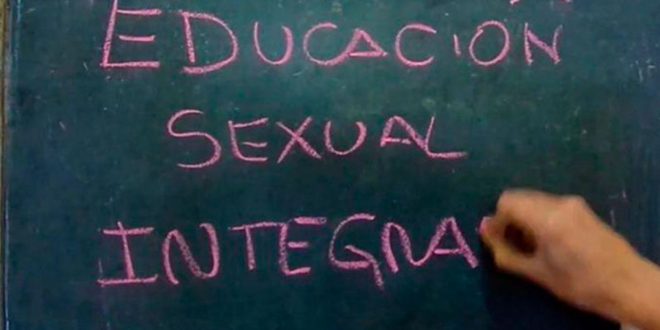 EDUCACION
SEXUAL
INTEGRA